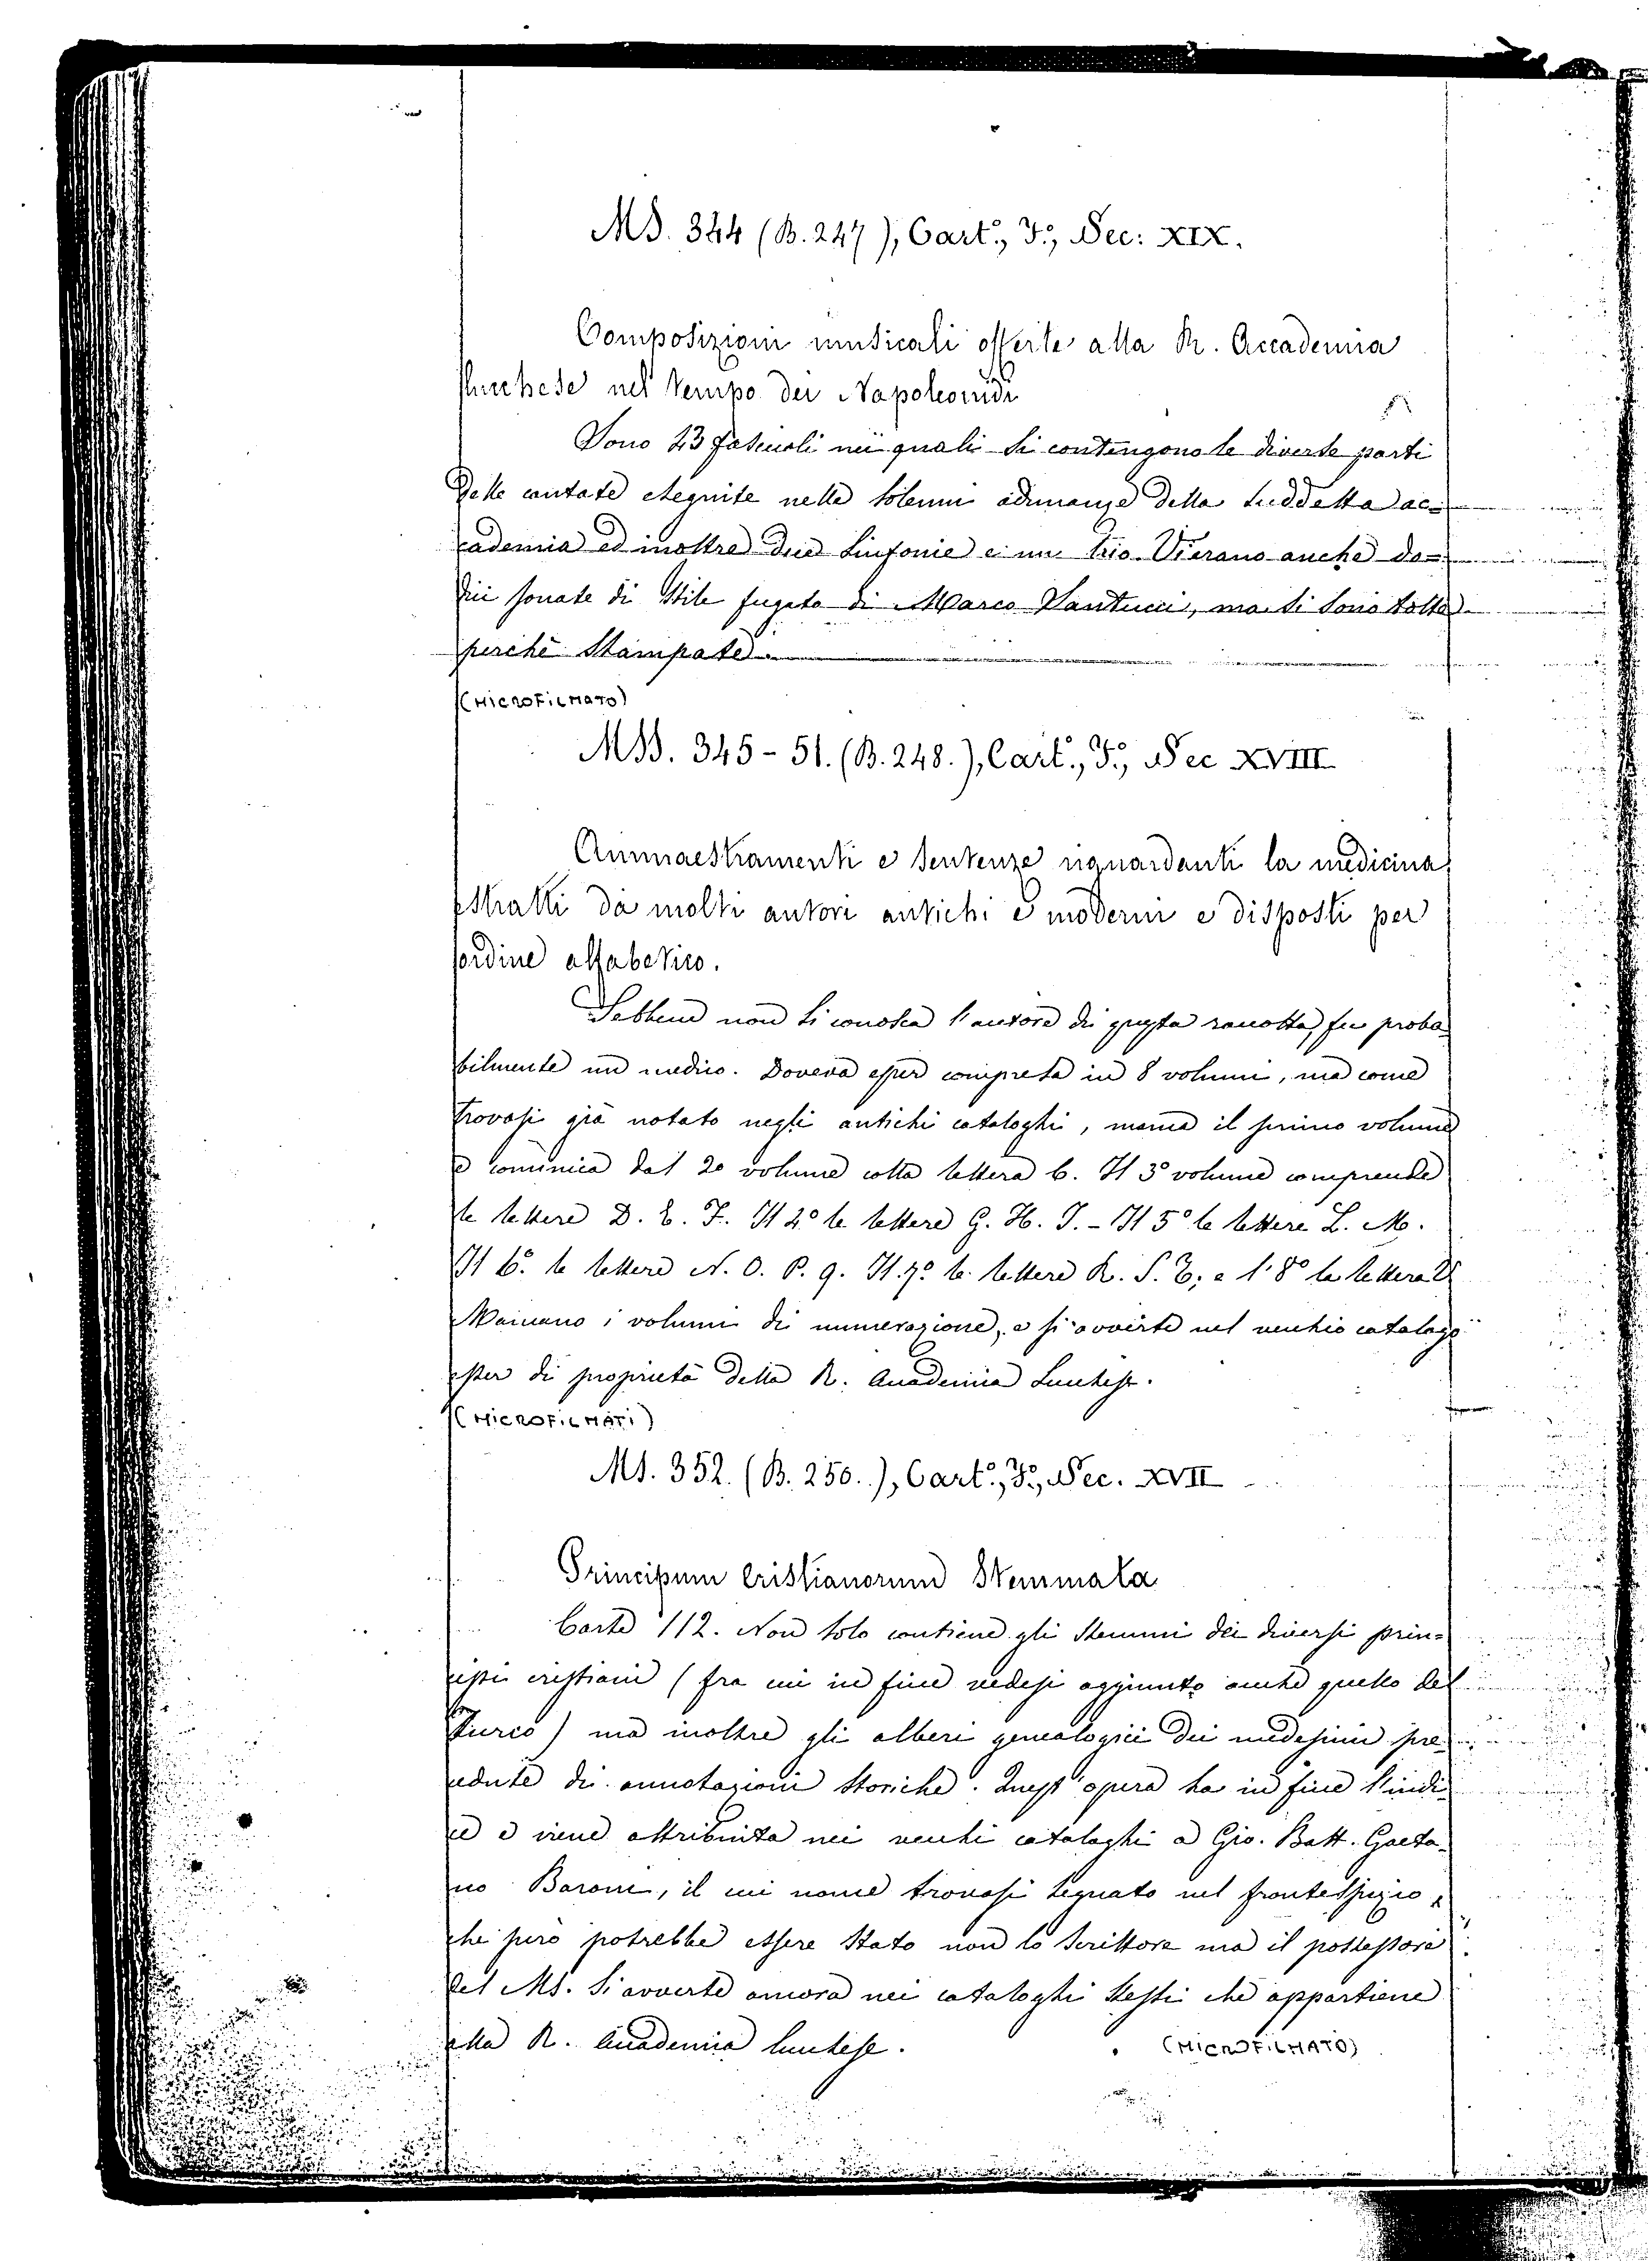 MS. 344 (B. 247), Cart.º, F.º, Sec: XIX.
Composizioni musicali offerte alla R. Accademia
Lucchese nel tempo dei Napoleonidi
Sono 23 fascicoli nei quali si contengono le diverse parti
delle cantate eseguite nelle solenni adunanze della suddetta ac=
cademia ed inoltre due sinfonie e un trio. Vi erano anche do=
dici sonate di stile fugato di Marco Santucci, ma si sono tolte
perchè stampate.
(MICROFILMATO)
MSS. 345-51. (B. 248.), Cart.º, F.º, Sec XVIII
Ammaestramenti e sentenze riguardanti la medicina
estratti da molti autori antichi e moderni e disposti per
ordine alfabetico.
Sebbene non si conosca l'autore di questa raccolta, fu proba
bilmente un medico. Doveva esser compresa in 8 volumi, ma come
trovasi già notato negli antichi cataloghi, manca il primo volume
e comincia dal 2º volume colla lettera C. Il 3º volume comprende
le lettere D. E. F. Il 4º le lettere G. H. I. - Il 5º le lettere L. M.
Il 6º. le lettere N. O. P. Q. Il 7º le lettere R. S. T; e l'8º la lettera V
Mancano i volumi di numerazione, e si avverte nel vecchio catalogo
esser di proprietà della R. Accademia Lucchese.
(MICROFILMATI)
MS. 352. (B. 250.), Cart.º, F.º, Sec. XVII
Principum Cristianorum Stemmata
Carte 112. Non solo contiene gli stemmi dei diversi prin=
cipi cristiani (fra cui in fine vedesi aggiunto anche quello del
Turco) ma inoltre gli alberi genealogici dei medesimi pre
cedute di annotazioni storiche. Quest'opera ha in fine l'indi
ce e viene attribuita nei vecchi cataloghi a Gio. Batt. Gaeta
no Baroni, il cui nome trovasi segnato nel frontespizio,
che però potrebbe essere stato non lo scrittore ma il possessore
del MS. Si avverte ancora nei cataloghi stessi che appartiene
alla R. Accademia lucchese.
(MICROFILMATO)